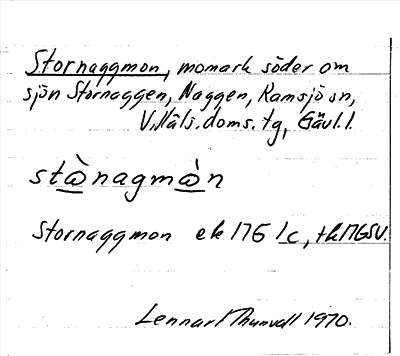 Stornaggmon, momark söder om
sjön Stornaggen, Naggen, Ramsjö sn,
V. Häls. doms. tg, Gävl. l.
stὼnagmὼn
Stornaggmon ek 17G 1c, tk 17GSV.
Lennart Thunvall 1970.